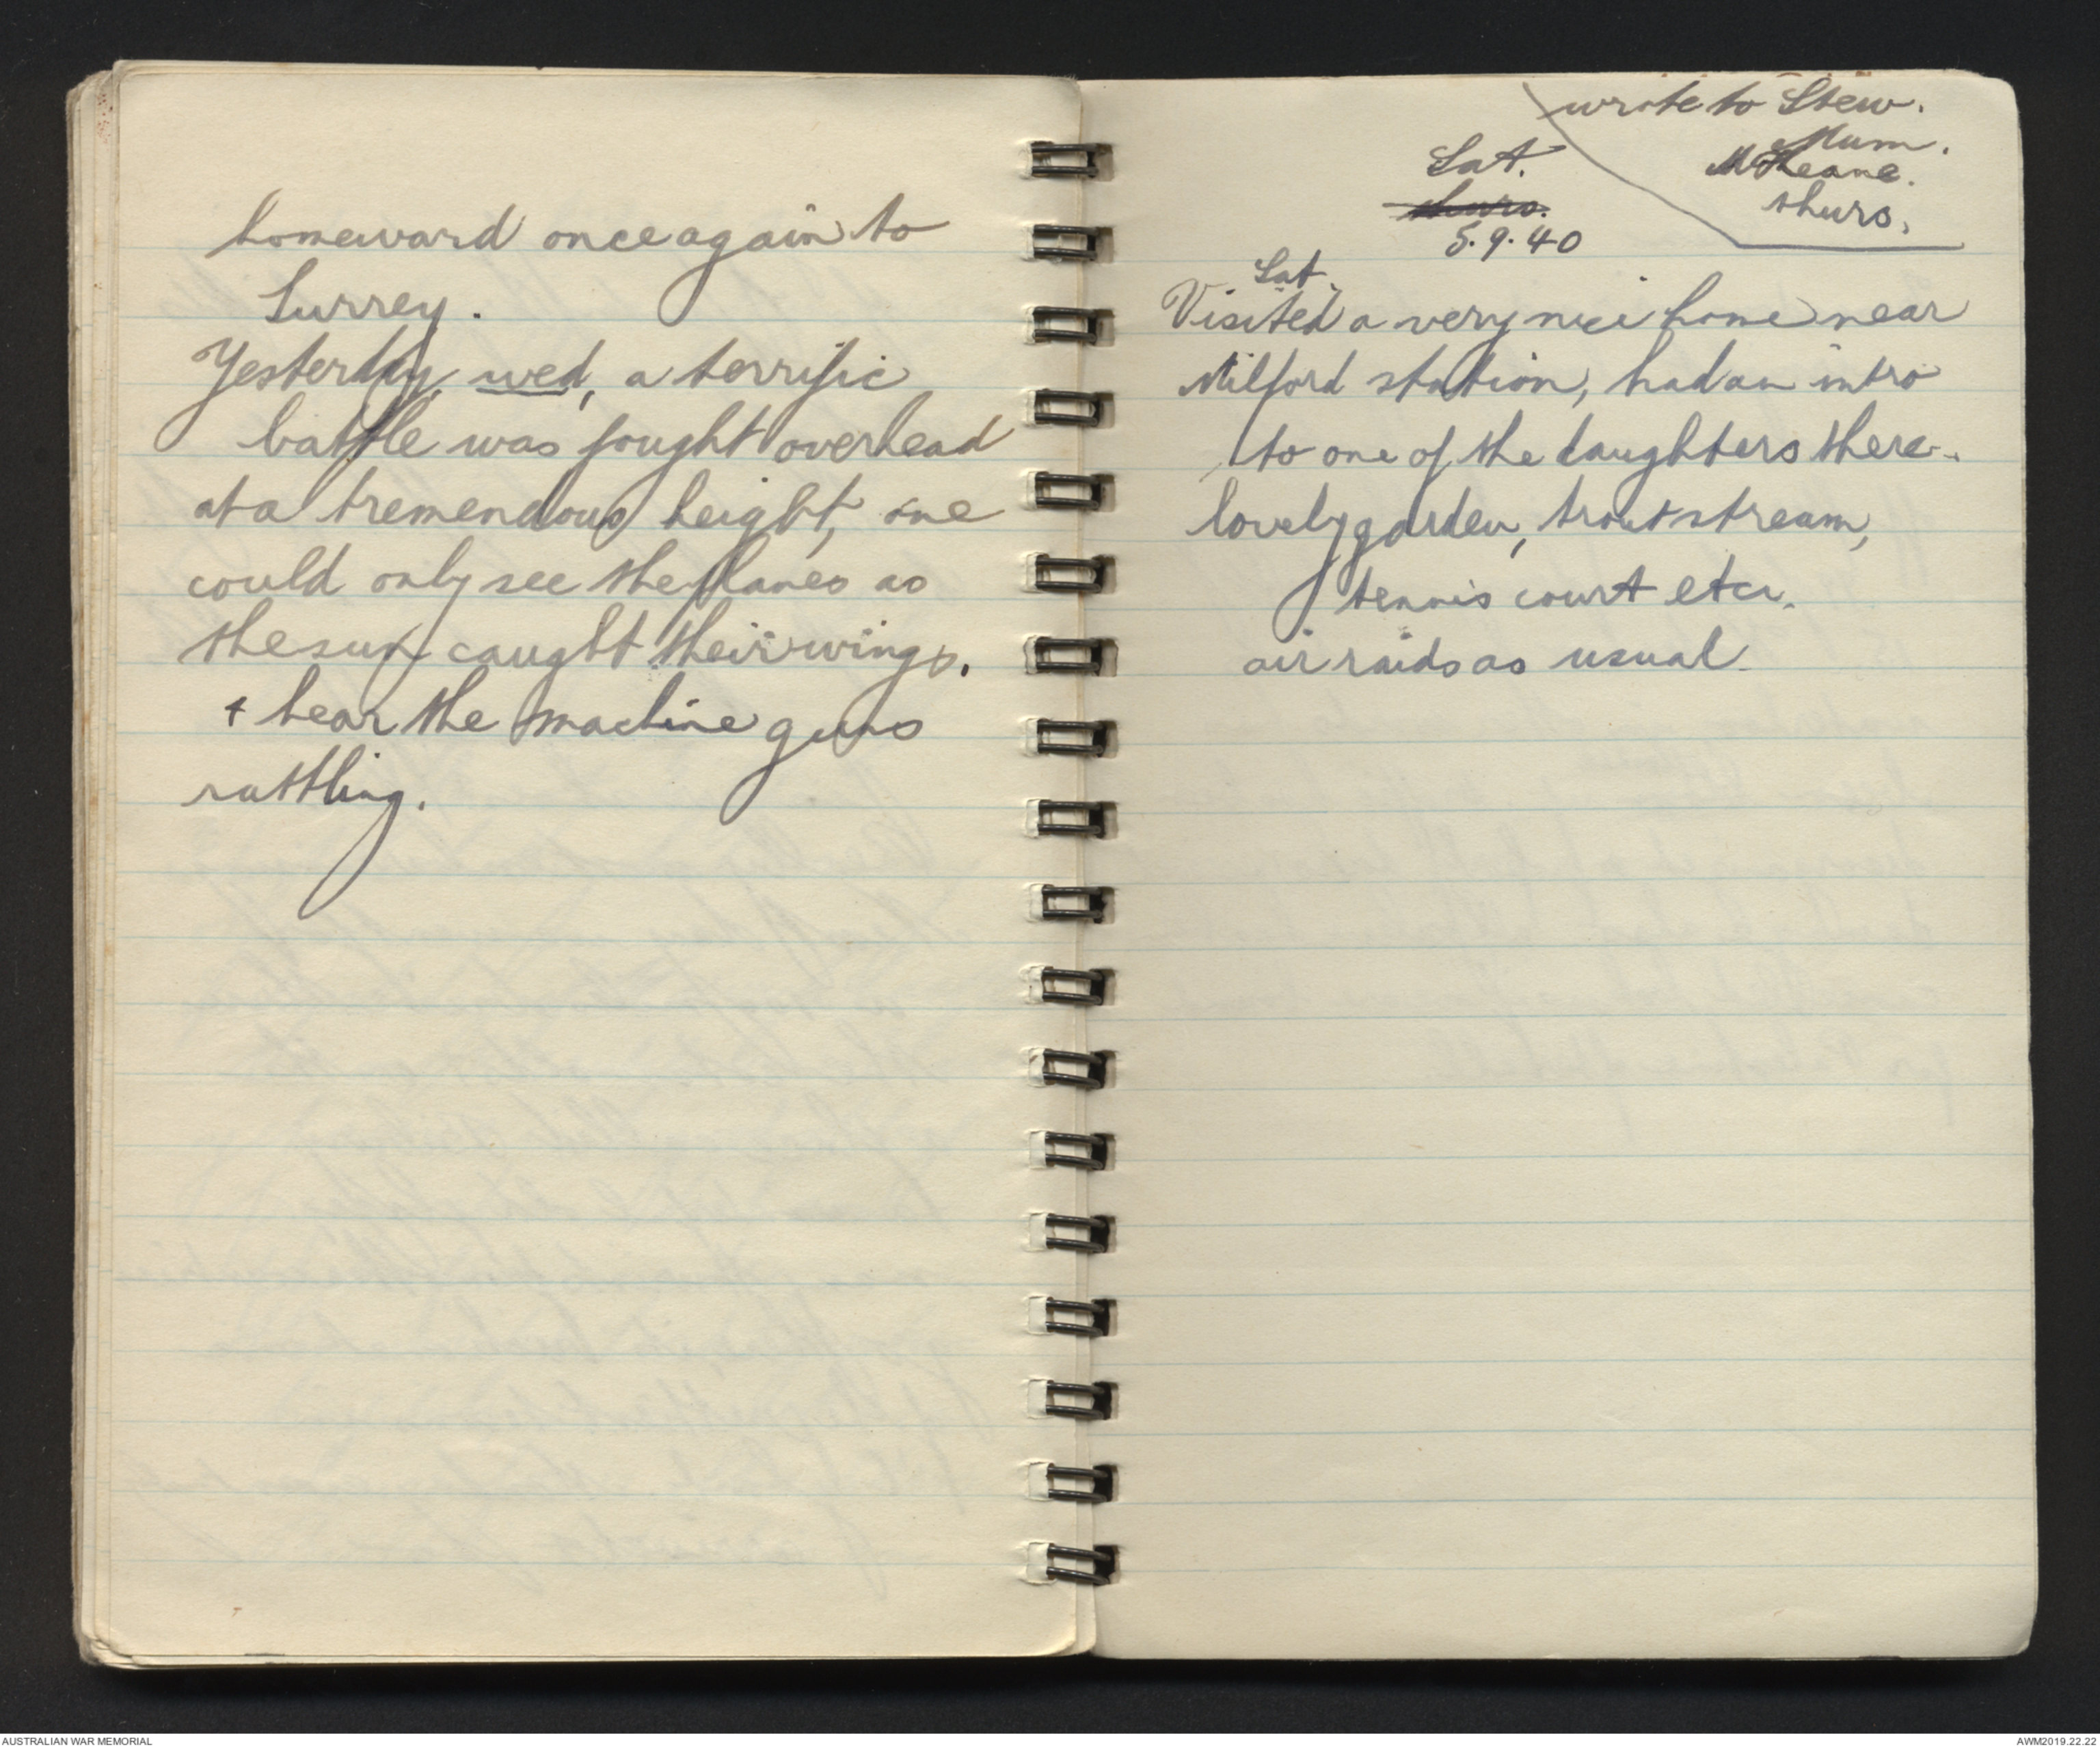 homeward once again to
Surrey.
Yesterday, wed, a terrific
battle was fought overhead
at a tremendous height, one
could only see the planes as
the sun caught their wings.
+ hear the machine guns
rattling.
wrote to Stew.
Mum.
McKeane.
thurs.
Sat.
thurs.
5.9.40
Sat.
Visited a very nice home near
Milford station, had an intro
to one of the daughters there.
lovely garden, trout stream,
tennis court etc.
air raids as usual.
AUSTRALIAN WAR MEMORIAL
AWM2019.22.22